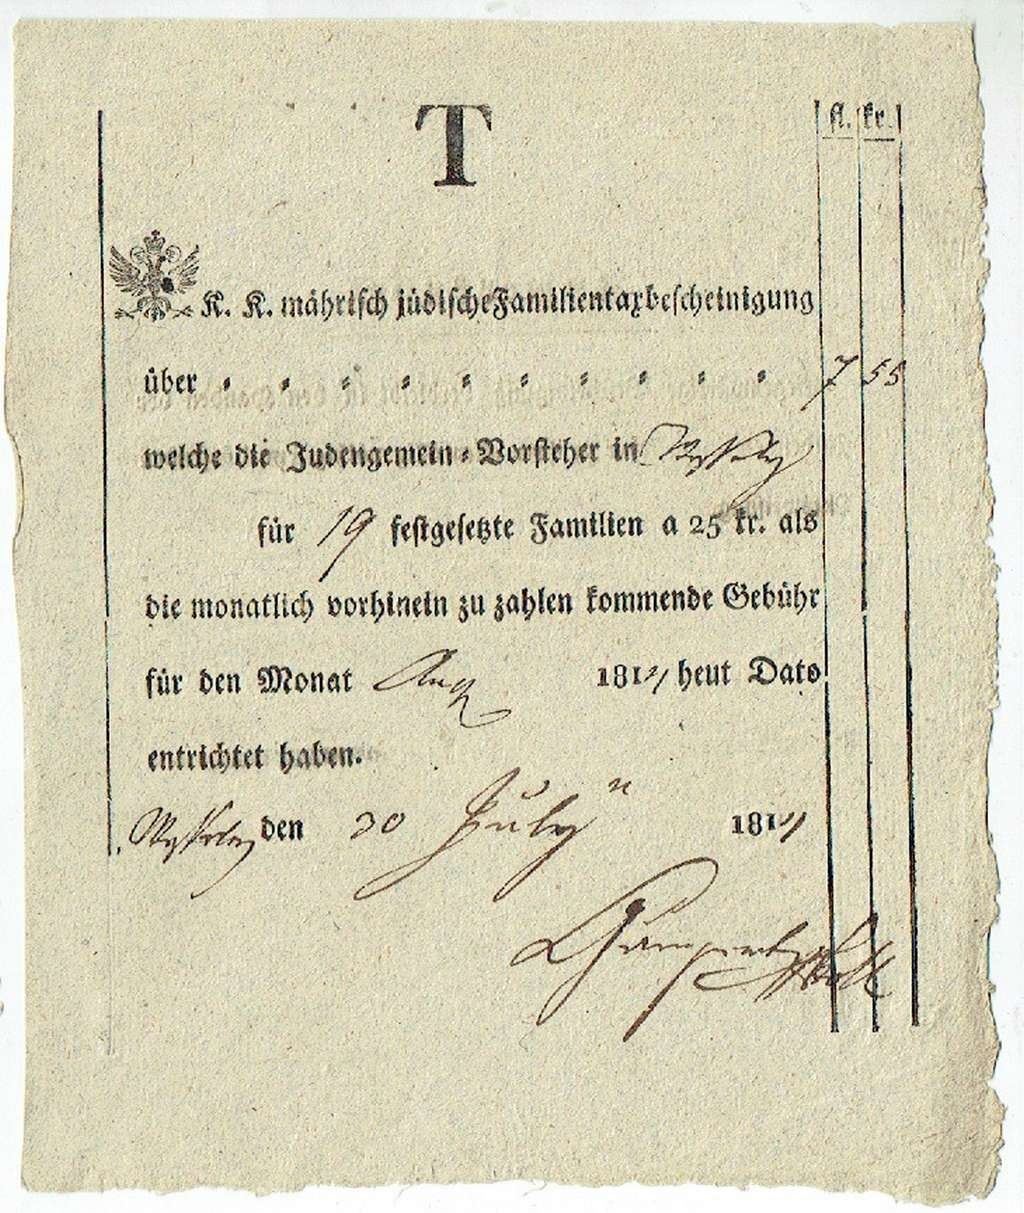 T
fl. kr.
K. K. mährisch jüdische Familientaxbescheinigung
über " " " " " " " " " " 7 55
welche die Judengemein-Vorsteher in
für 19 festgesetzte Familien a 25 kr. als
die monatlich vorhinein zu zahlen kommende Gebühr
für den Monat Aug 181 heut Dato
entrichtet haben.
den 30 July 181